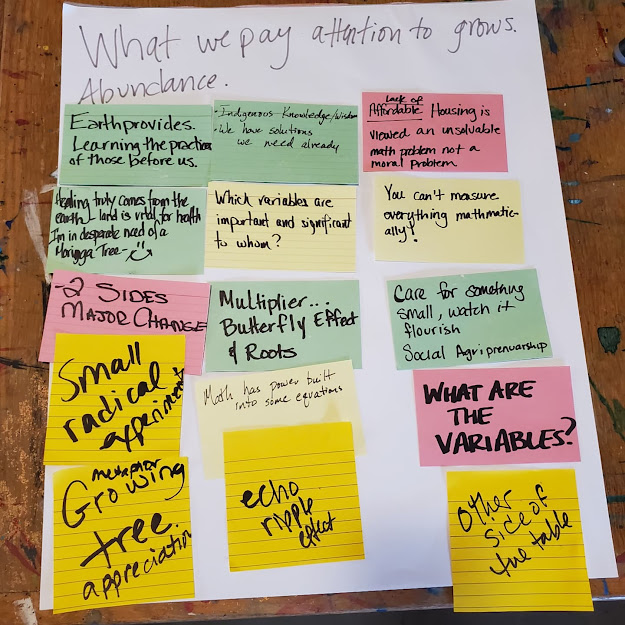 What we pay attention to grows.
Abundance.
Earth provides.
Learning the practices
of those before us.
- Indigenous Knowledge/Wisdom
- We have solutions
we need already
Lack of
Affordable Housing is
viewed an unsolvable
math problem not a
moral problem
Healing truly comes from the
earth - land is vital for health
I'm in desperate need of a
Moringa Tree -
Which variables are
important and significant
to whom?
You can't measure
everything mathmatic-
ally!
- 2 SIDES
MAJOR CHANGE
Multiplier...
Butterfly Effect
& Roots
Care for something
small, watch it
flourish
Social Agriprenuarship
Small
radical
experiments
Math has power built
into some equations
WHAT ARE
THE
VARIABLES?
metaphor
Growing
tree
appreciation
echo
ripple
effect
Other
side of
the table